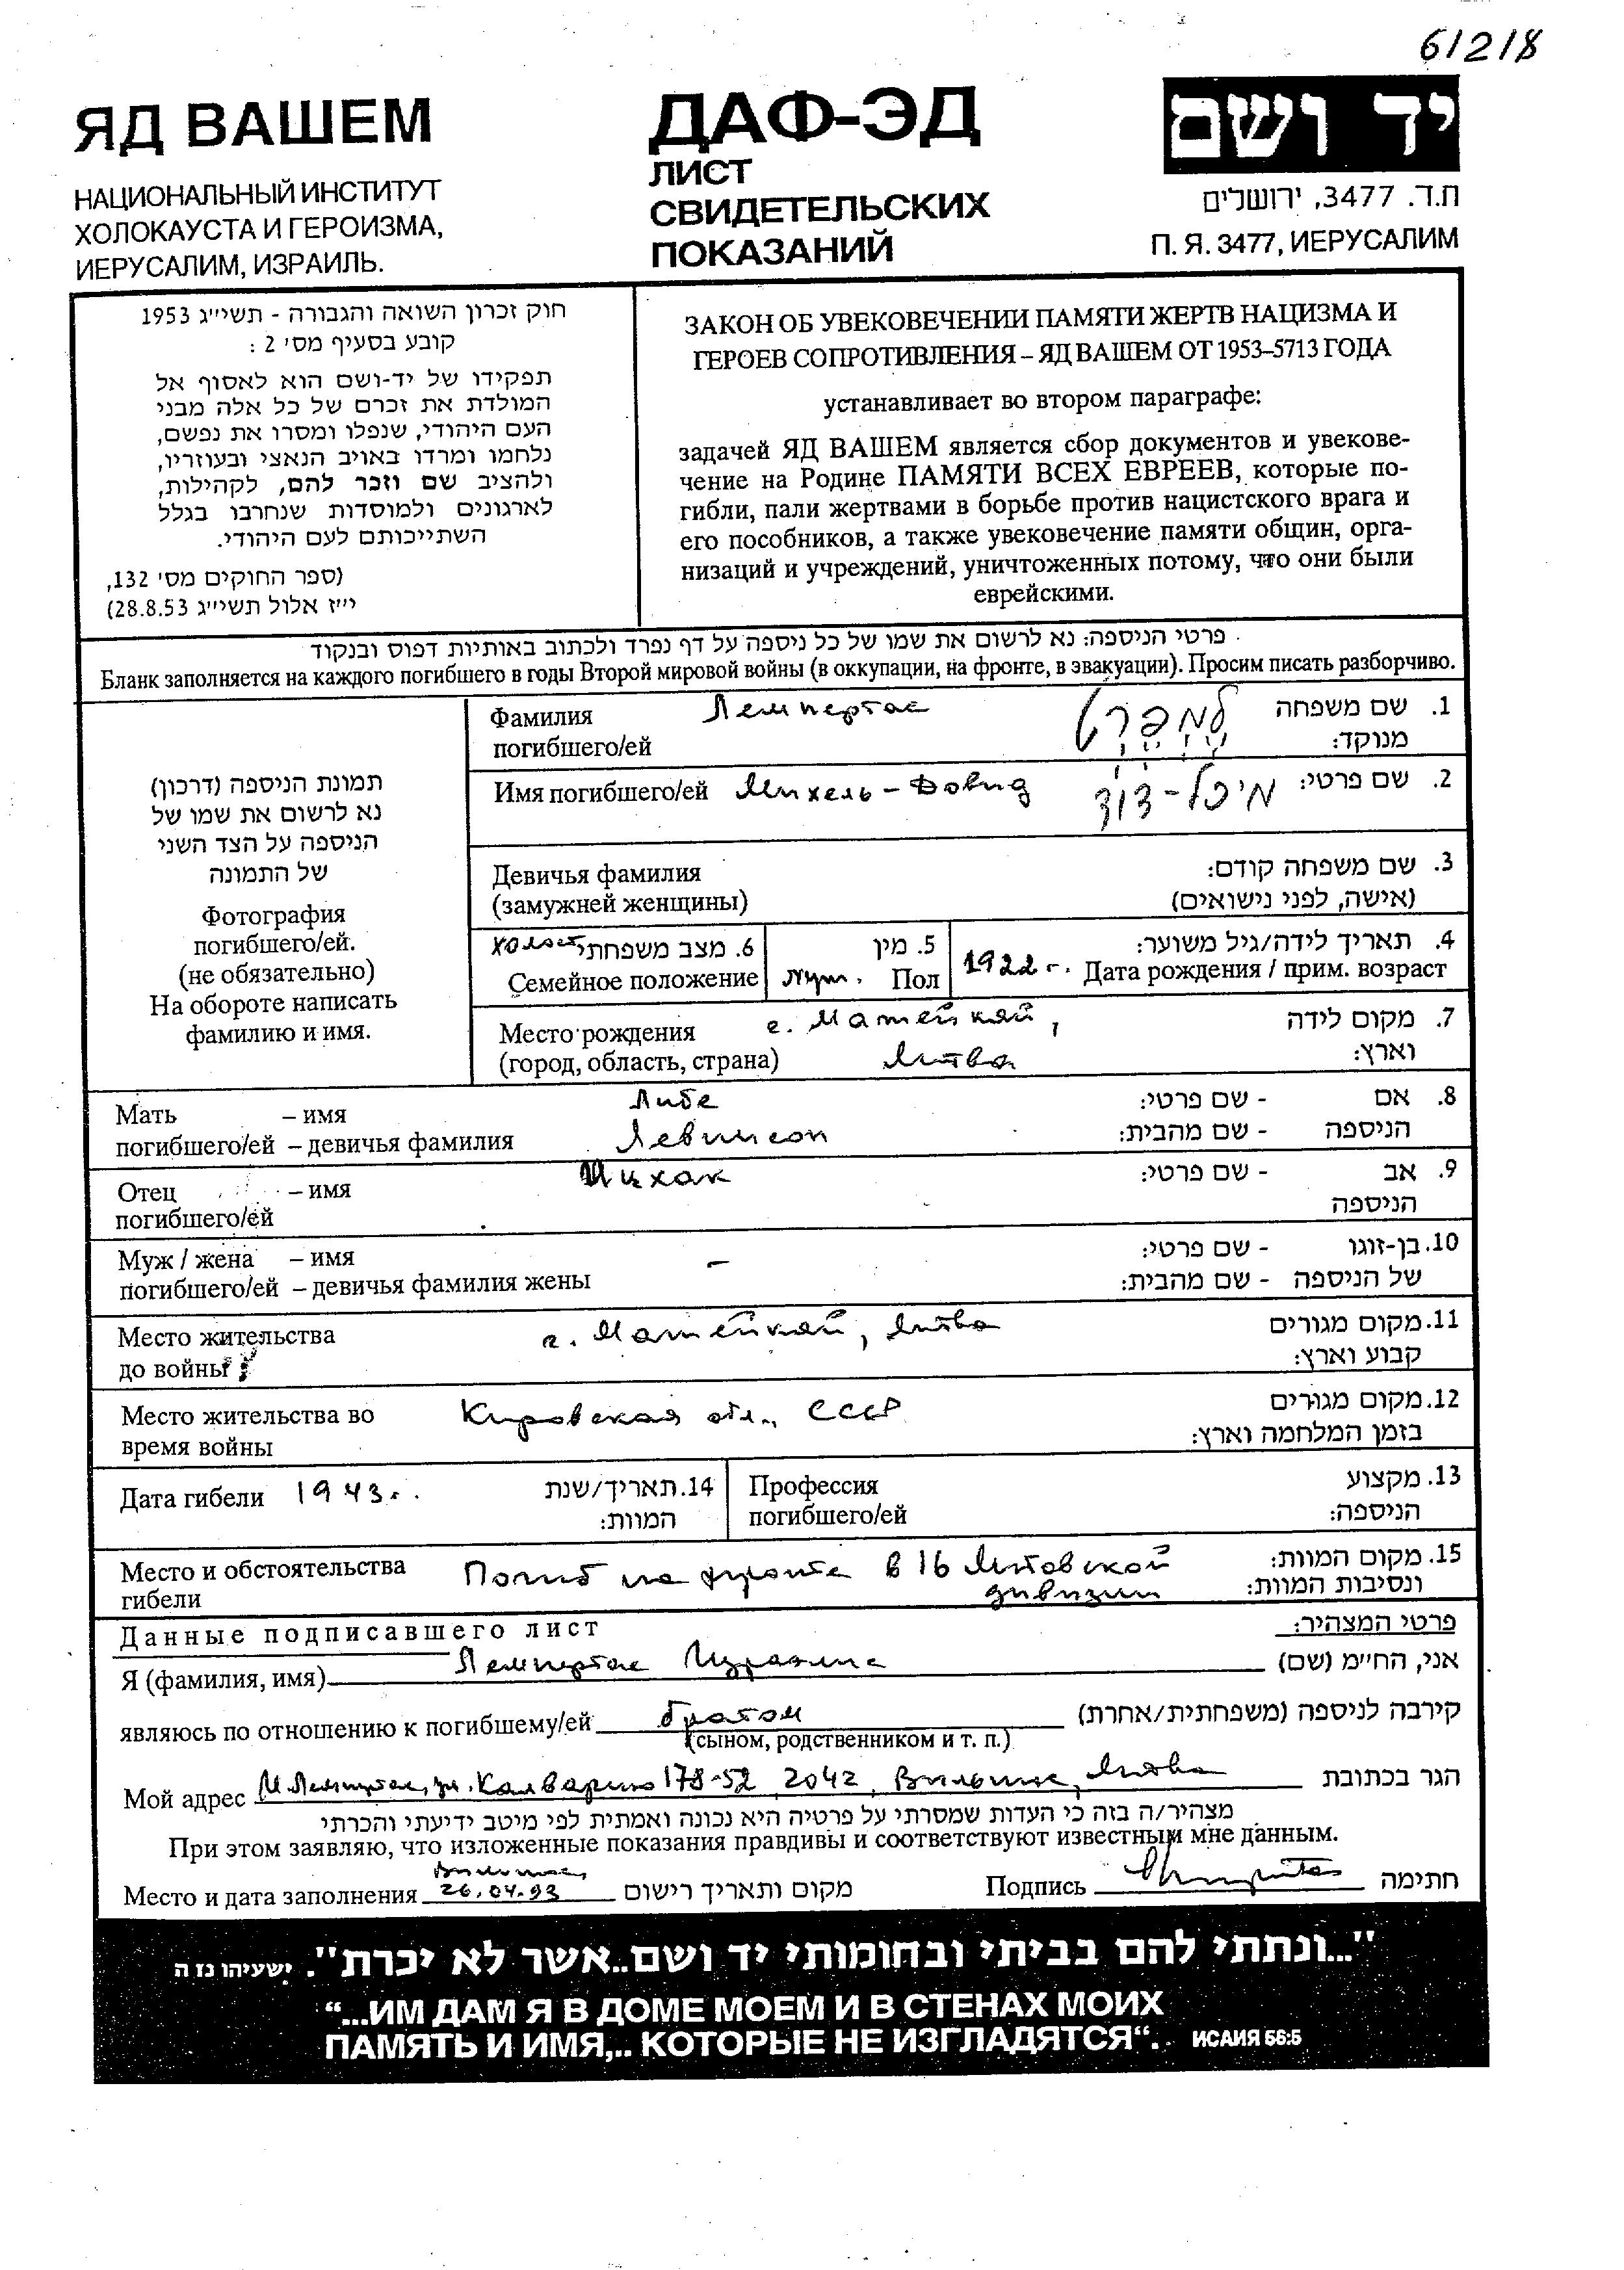 61218
ЯД ВАШЕМ
НАЦИОНАЛЬНЫЙ ИНСТИТУТ
ХОЛОКАУСТА И ГЕРОИЗМА,
ИЕРУСАЛИМ, ИЗРАИЛЬ.
ДАФ-ЭД
ЛИСТ
СВИДЕТЕЛЬСКИХ
ПОКАЗАНИЙ
יד ושם
ת.ד. 3477, ירושלים
П. Я. 3477, ИЕРУСАЛИМ
חוק זכרון השואה והגבורה - תשי״ג 1953
קובע בסעיף מס׳ 2 :
תפקידו של יד-ושם הוא לאסוף אל
המולדת את זכרם של כל אלה מבני
העם היהודי, שנפלו ומסרו את נפשם,
נלחמו ומרדו באויב הנאצי ובעוזריו,
ולהציב שם וזכר להם, לקהילות,
לארגונים ולמוסדות שנחרבו בגלל
השתייכותם לעם היהודי.
(ספר החוקים מס׳ 132,
י״ז אלול תשי״ג 28.8.53)
ЗАКОН ОБ УВЕКОВЕЧЕНИИ ПАМЯТИ ЖЕРТВ НАЦИЗМА И
ГЕРОЕВ СОПРОТИВЛЕНИЯ – ЯД ВАШЕМ ОТ 1953–5713 ГОДА
устанавливает во втором параграфе:
задачей ЯД ВАШЕМ является сбор документов и увекове-
чение на Родине ПАМЯТИ ВСЕХ ЕВРЕЕВ, которые по-
гибли, пали жертвами в борьбе против нацистского врага и
его пособников, а также увековечение памяти общин, орга-
низаций и учреждений, уничтоженных потому, что они были
еврейскими.
פרטי הניספה: נא לרשום את שמו של כל ניספה על דף נפרד ולכתוב באותיות דפוס ובנקוד
Бланк заполняется на каждого погибшего в годы Второй мировой войны (в оккупации, на фронте, в эвакуации). Просим писать разборчиво.
תמונת הניספה (דרכון)
נא לרשום את שמו של
הניספה על הצד השני
של התמונה
Фотография
погибшего/ей.
(не обязательно)
На обороте написать
фамилию и имя.
Фамилия Лемпертас למפרט 1. שם משפחה
погибшего/ей מנוקד:
Имя погибшего/ей Михель-Довид מיכל-דוד 2. שם פרטי:
Девичья фамилия 3. שם משפחה קודם:
(замужней женщины) (אישה, לפני נישואים)
холост 6. מצב משפחתי 5. מין 4. תאריך לידה/גיל משוער:
Семейное положение муж. Пол 1922 г. Дата рождения / прим. возраст
Место рождения г. Матейкяй, 7. מקום לידה
(город, область, страна) Литва וארץ:
Мать – имя Либе 8. אם - שם פרטי:
погибшего/ей – девичья фамилия Левинсон הניספה - שם מהבית:
Отец – имя Ицхак 9. אב - שם פרטי:
погибшего/ей הניספה
Муж / жена – имя – 10. בן-זוגו - שם פרטי:
погибшего/ей – девичья фамилия жены של הניספה - שם מהבית:
Место жительства г. Матейкяй, Литва 11. מקום מגורים
до войны קבוע וארץ:
Место жительства во Кировская обл., СССР 12. מקום מגורים
время войны בזמן המלחמה וארץ:
Дата гибели 1943 г. 14. תאריך/שנת Профессия 13. מקצוע
המוות: погибшего/ей הניספה:
Место и обстоятельства Погиб на фронте в 16 Литовской 15. מקום המוות:
гибели дивизии ונסיבות המוות:
Данные подписавшего лист פרטי המצהיר:
Я (фамилия, имя) Лемпертас Израелис אני, הח״מ (שם)
являюсь по отношению к погибшему/ей братом קירבה לניספה (משפחתית/אחרת)
(сыном, родственником и т. п.)
Мой адрес И. Лемпертас, ул. Калварию 178-52, 2042, Вильнюс, Литва הגר בכתובת
מצהיר/ה בזה כי העדות שמסרתי על פרטיה היא נכונה ואמתית לפי מיטב ידיעתי והכרתי
При этом заявляю, что изложенные показания правдивы и соответствуют известным мне данным.
Вильнюс,
Место и дата заполнения 26.04.93 מקום ותאריך רישום Подпись חתימה
"...ונתתי להם בביתי ובחומותי יד ושם..אשר לא יכרת". ישעיהו נז ה
“...ИМ ДАМ Я В ДОМЕ МОЕМ И В СТЕНАХ МОИХ
ПАМЯТЬ И ИМЯ,.. КОТОРЫЕ НЕ ИЗГЛАДЯТСЯ“. ИСАИЯ 56:5